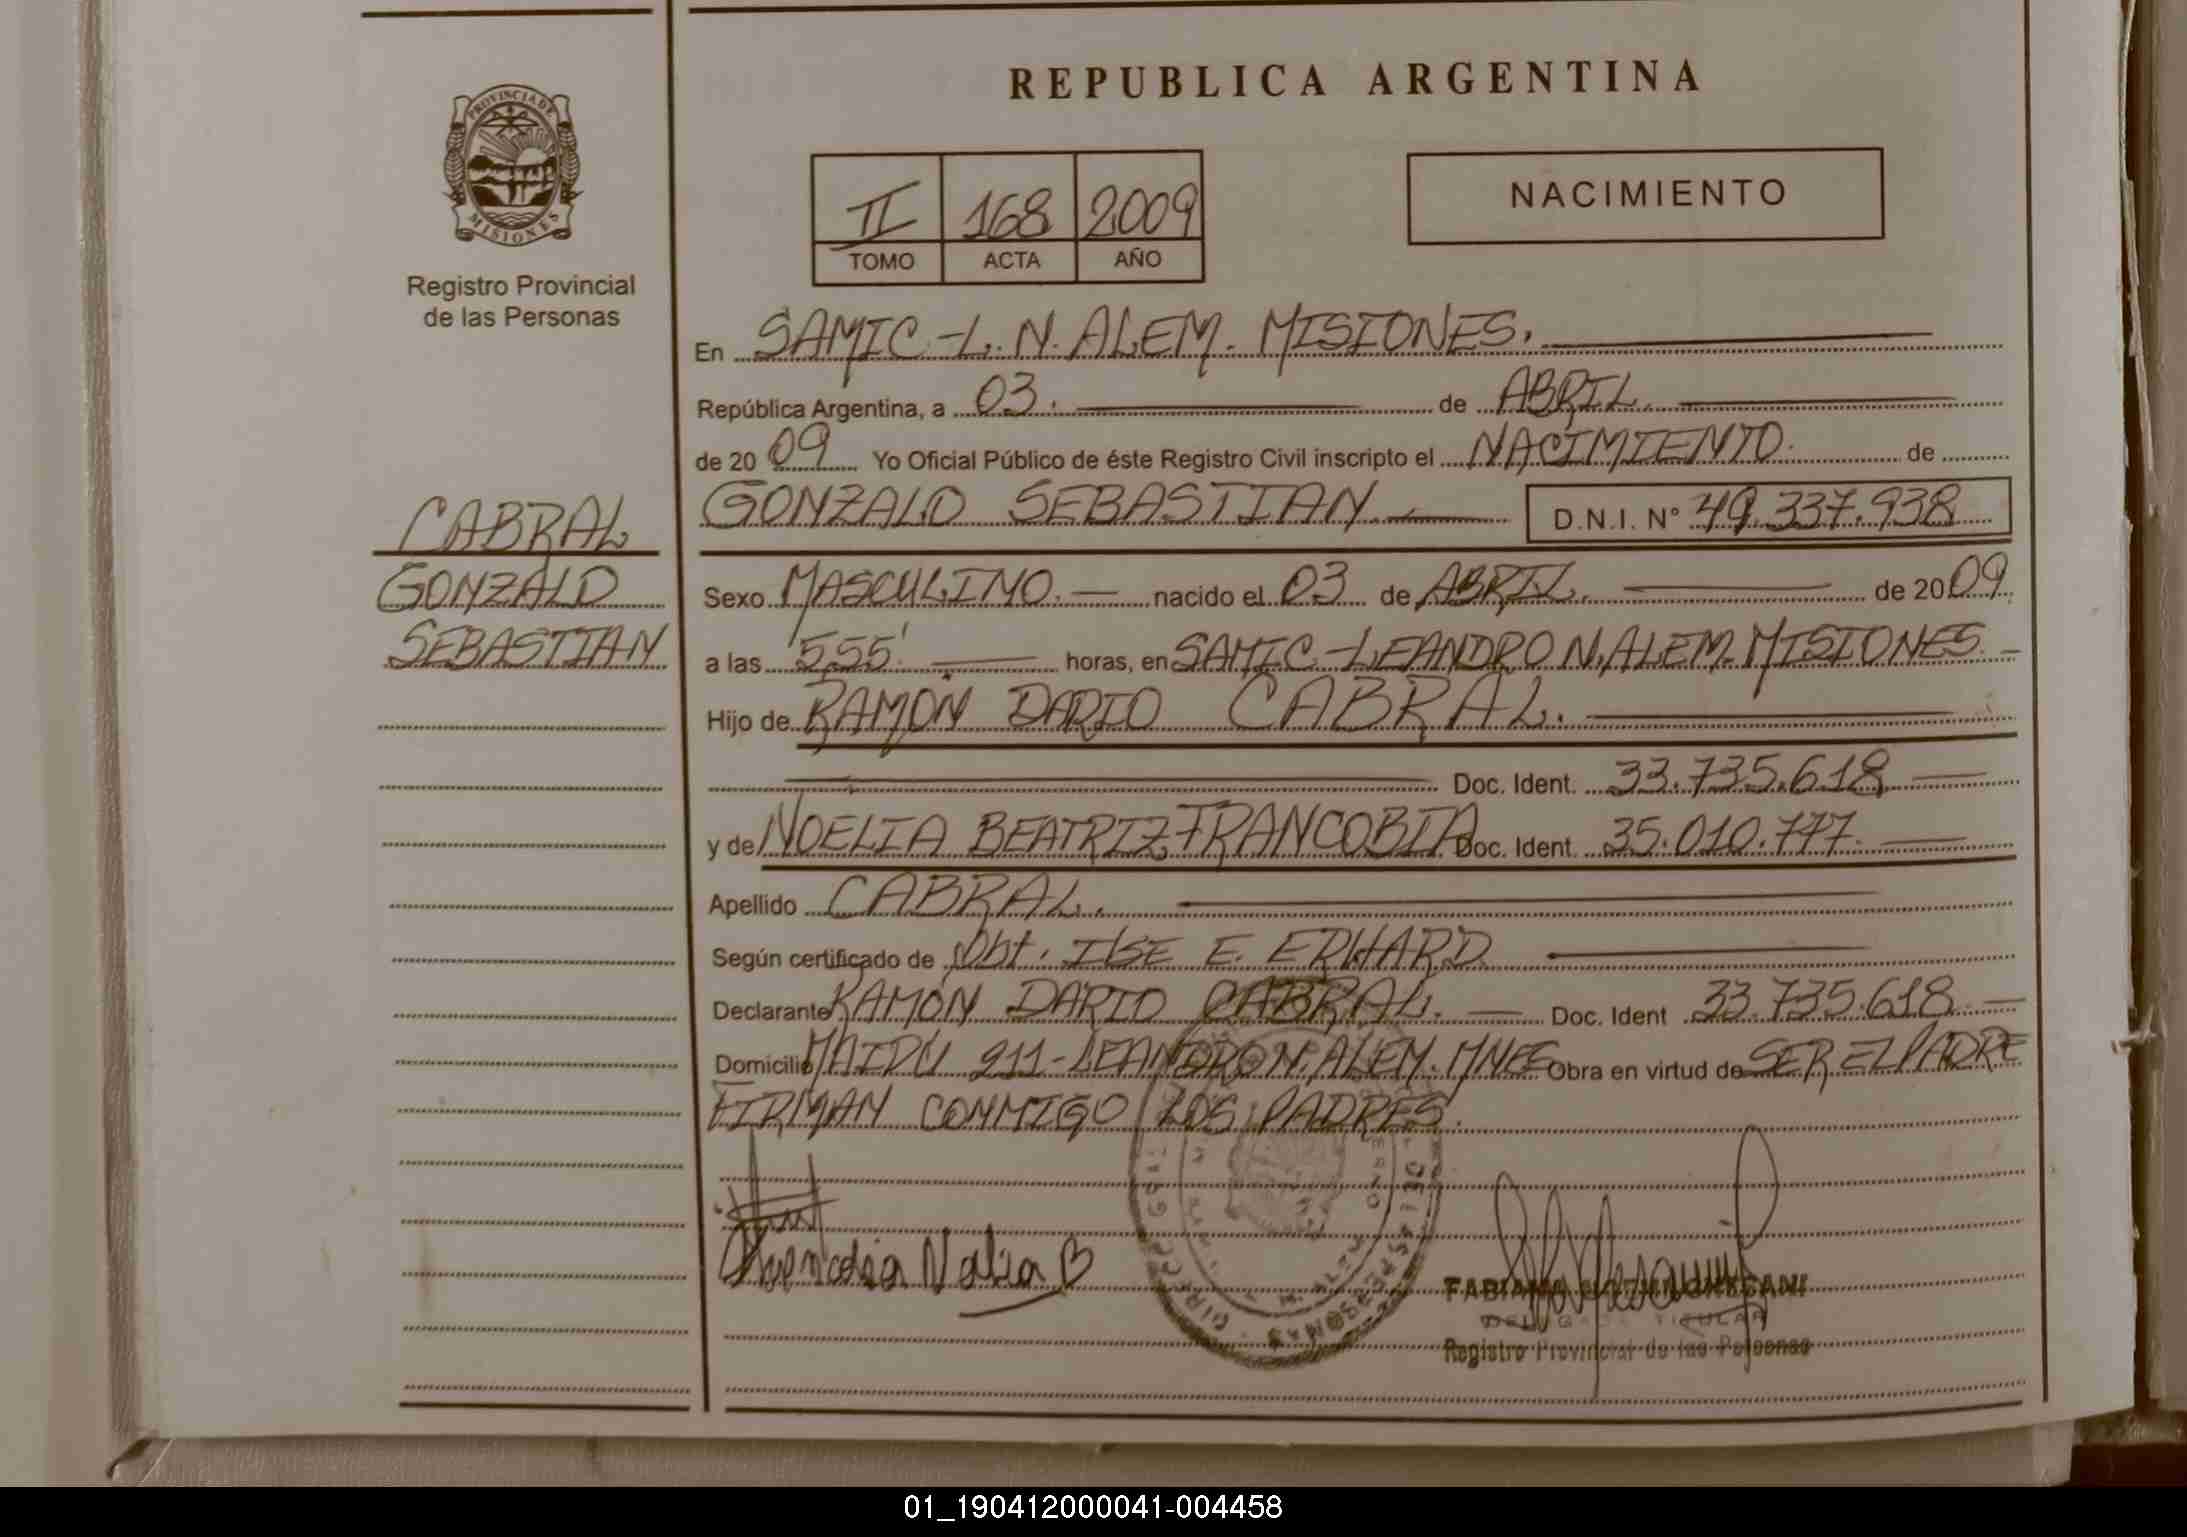 REPUBLICA ARGENTINA
PROVINCIA DE
MISIONES
Registro Provincial
de las Personas
II 168 2009
TOMO ACTA AÑO
NACIMIENTO
En SAMIC-L.N.ALEM. MISIONES.
República Argentina, a 03. de ABRIL.
de 2009 Yo Oficial Público de éste Registro Civil inscripto el NACIMIENTO. de
GONZALO SEBASTIAN. D.N.I. Nº 49.337.938
CABRAL
GONZALO
SEBASTIAN
Sexo MASCULINO. nacido el 03 de ABRIL. de 2009.
a las 5,55' horas, en SAMIC-LEANDRO N.ALEM.MISIONES.
Hijo de RAMÓN DARIO CABRAL.
Doc. Ident. 33.735.618
y de NOELIA BEATRIZ FRANCOBIA Doc. Ident. 35.010.777.
Apellido CABRAL.
Según certificado de Obt. ILSE E. ERHARD
Declarante RAMÓN DARIO CABRAL. Doc. Ident 33.735.618.
Domicilio MAIPU 211-LEANDRO N.ALEM.MNES Obra en virtud de SER EL PADRE
FIRMAN CONMIGO LOS PADRES.
DELEGADA TITULAR
Registro Provincial de las Personas
01_190412000041-004458